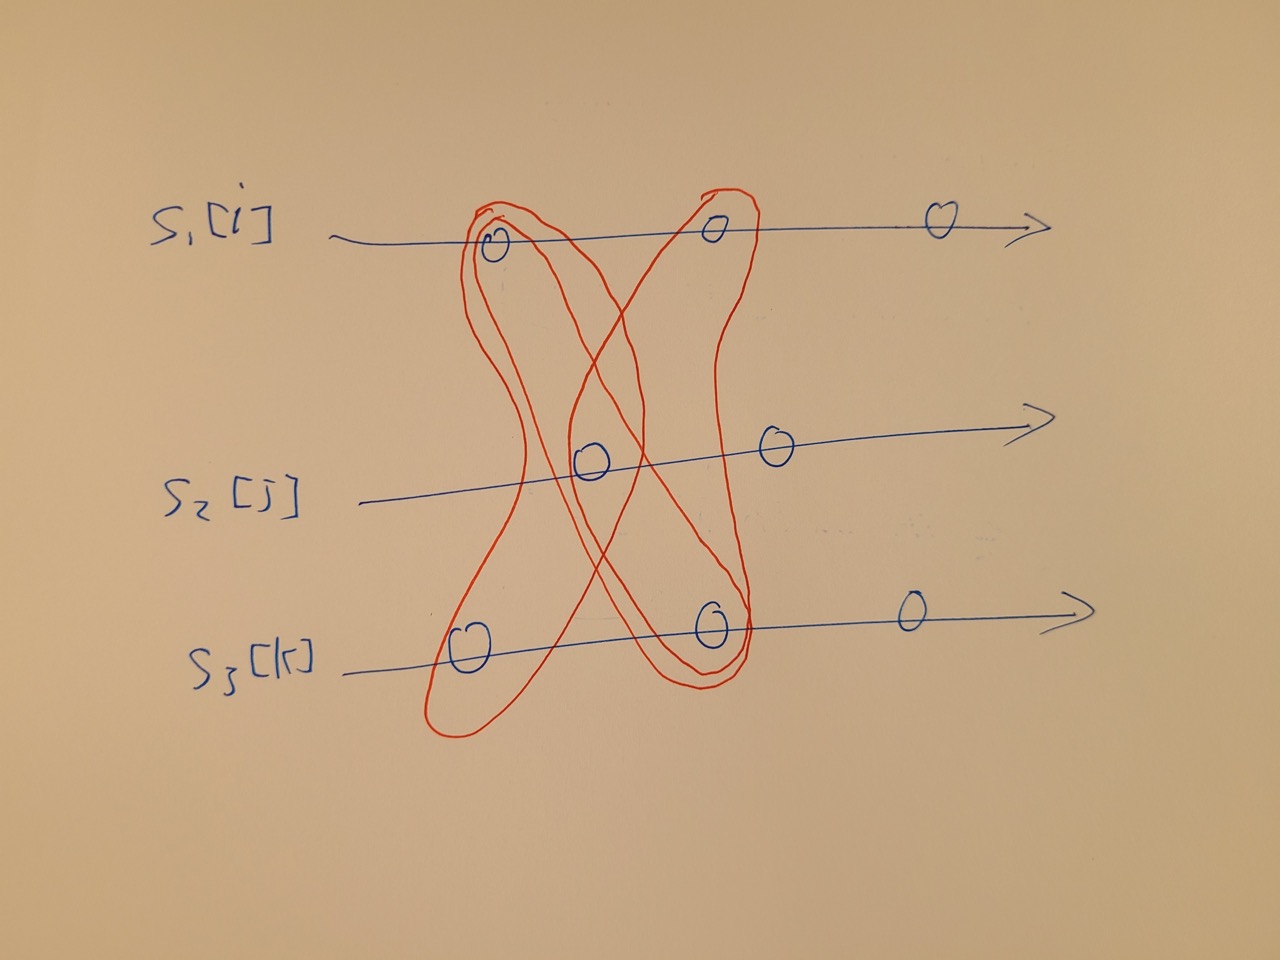 S₁[i]
S₂[j]
S₃[k]